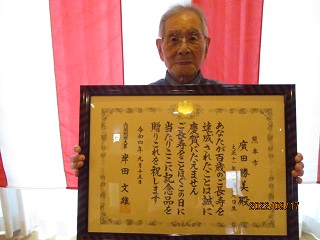 熊本市
廣田勝美殿
あなたが百歳のご長寿を
達成されたことは誠に
慶賀にたえません
ご長寿をことほぐこの日に
当たりここに記念品を
贈りこれを祝します
令和四年九月十五日
内閣総理大臣 岸田文雄
2022/09/17